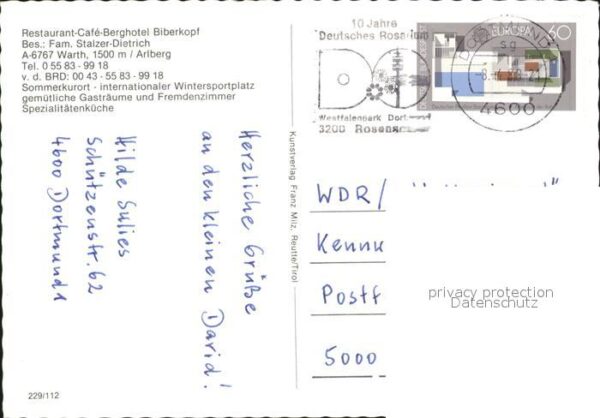 Restaurant-Café-Berghotel Biberkopf
Bes.: Fam. Stalzer-Dietrich
A-6767 Warth, 1500 m / Arlberg
Tel. 0 55 83 - 99 18
v. d. BRD: 00 43 - 55 83 - 99 18
Sommerkurort · internationaler Wintersportplatz
gemütliche Gasträume und Fremdenzimmer
Spezialitätenküche
Herzliche Grüße
an den kleinen David!
Hilde Sulies
Schützenstr. 62
4600 Dortmund 1
229/112
Kunstverlag Franz Milz, Reutte/Tirol
10 Jahre
Deutsches Rosarium
Westfalenpark Dort
3200 Rosen
EUROPA 60
sg
4600
WDR/
Kennu
Postf
5000
privacy protection
Datenschutz